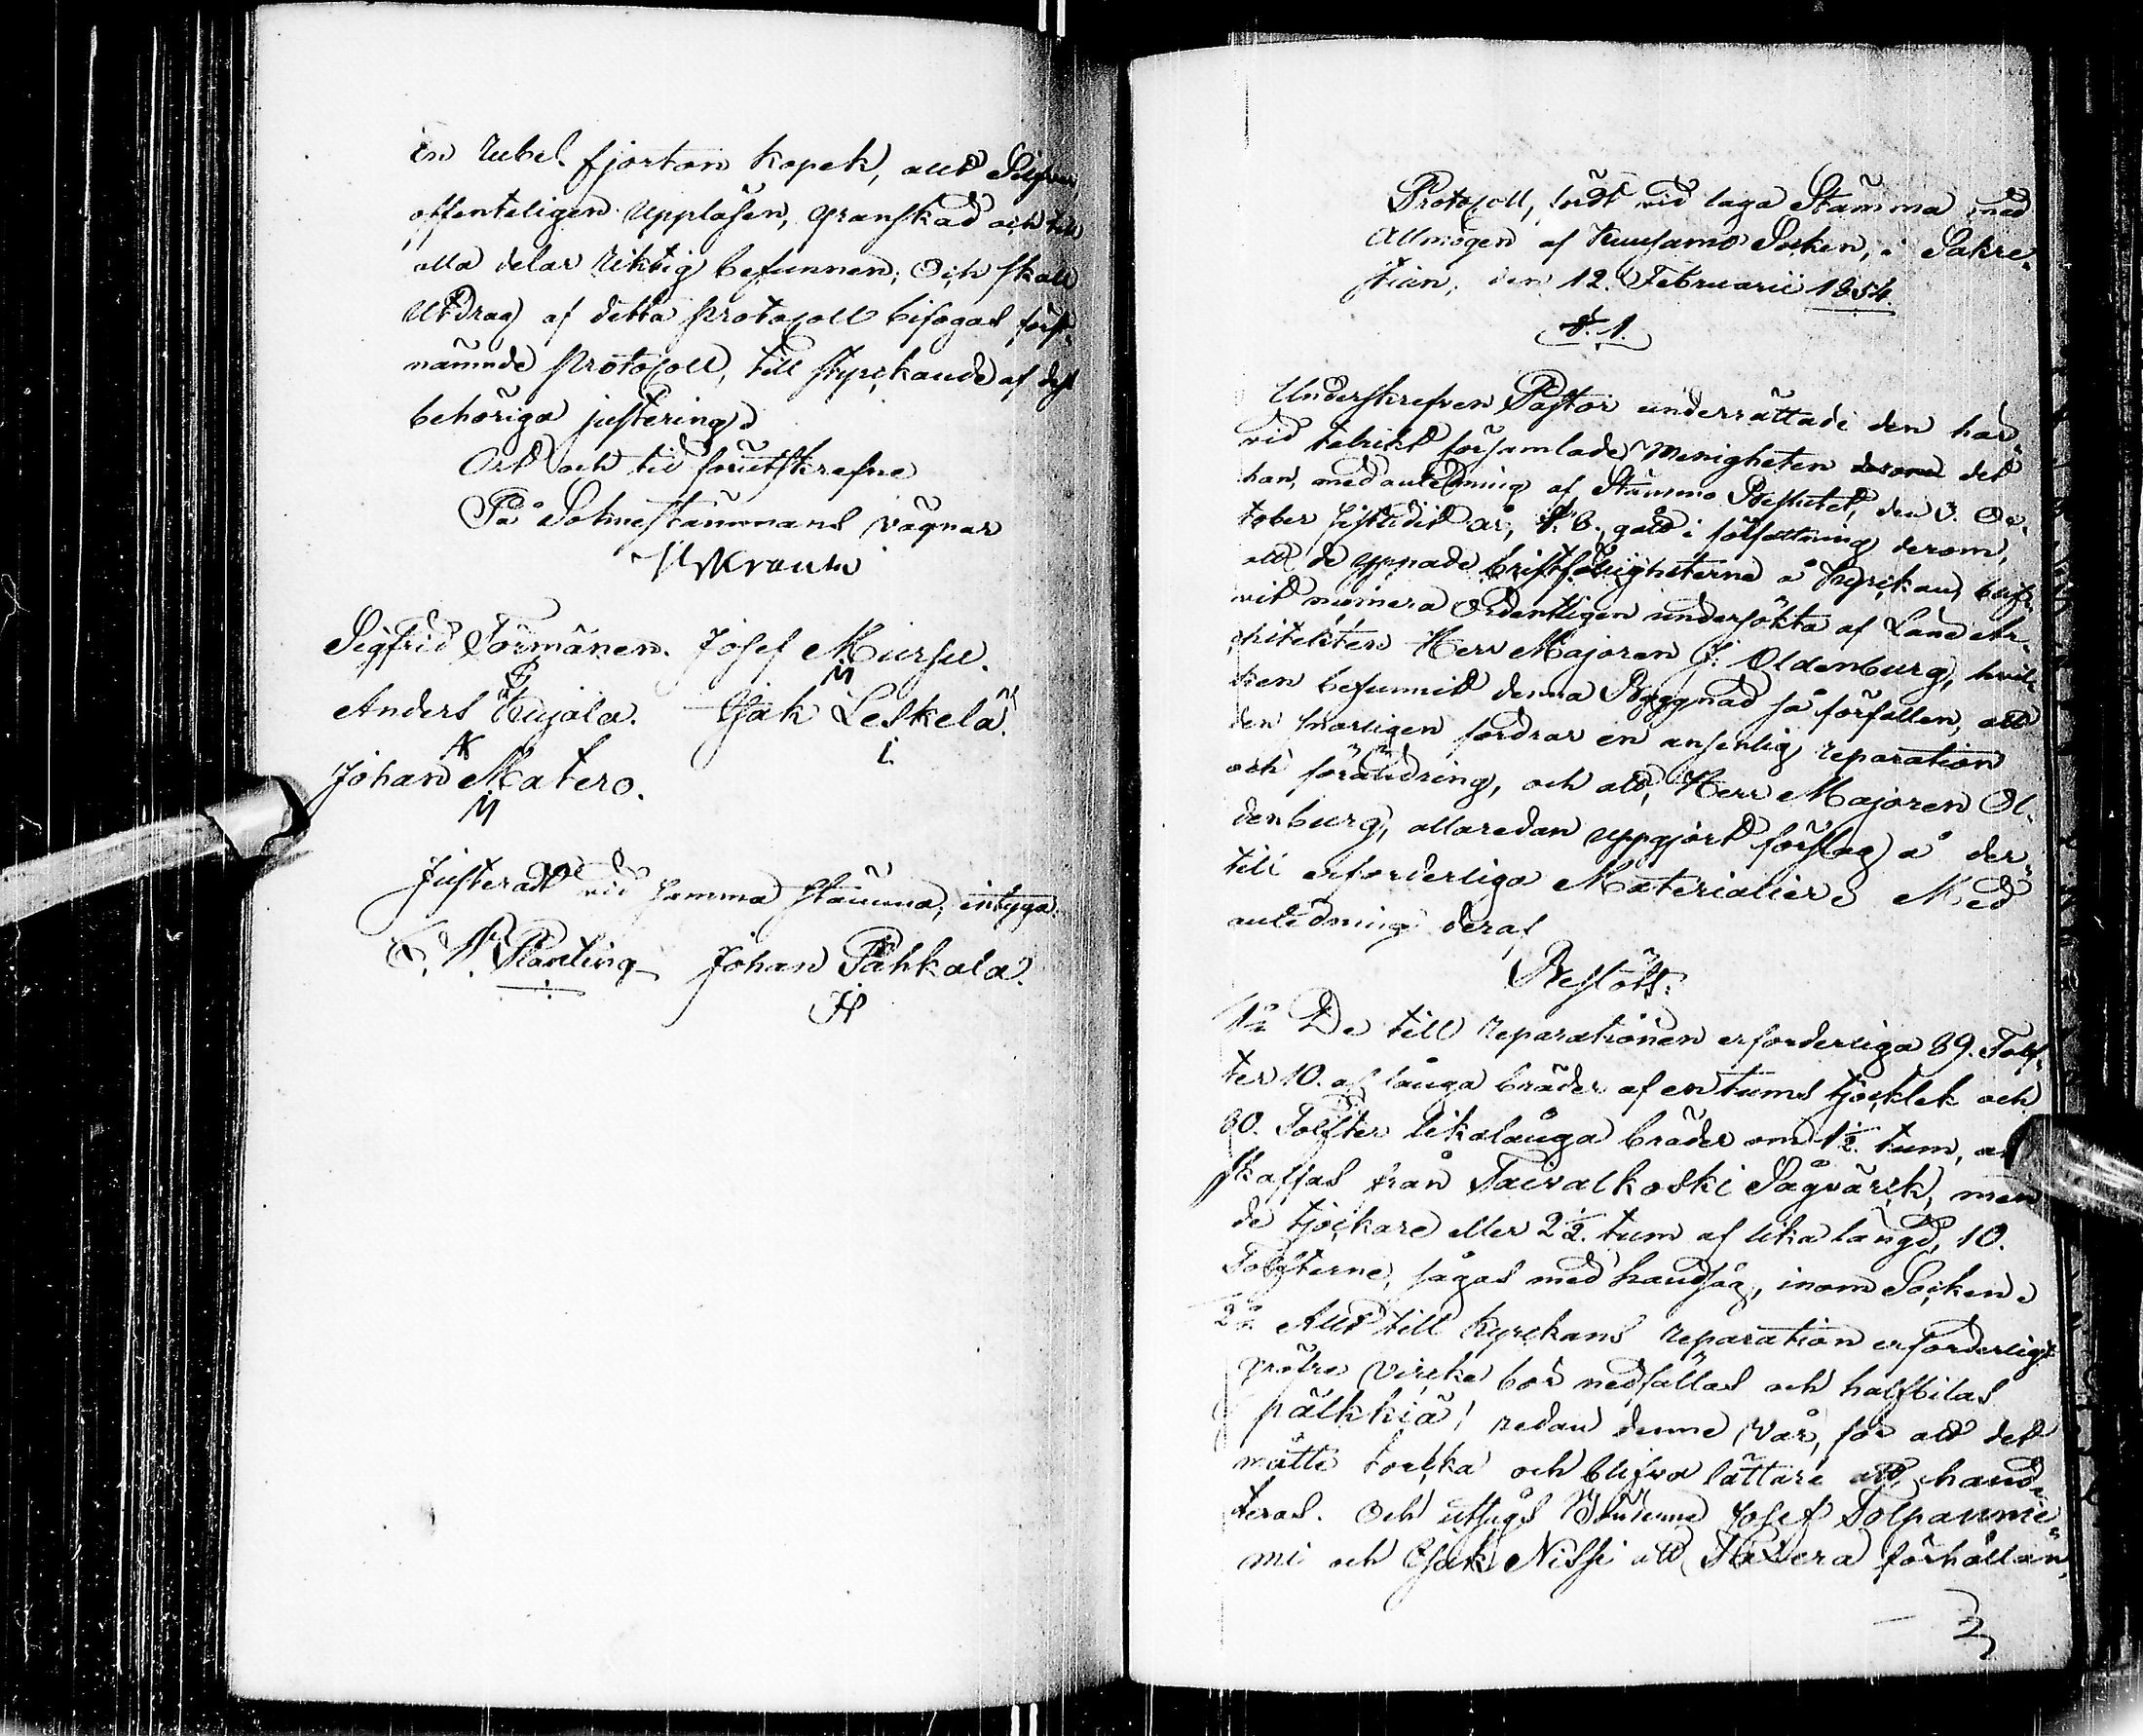 en rubel fjorton kopek, allt Silfver,
offenteligen uppläsen, granskad och till
alla delar riktig befunnen; Och skall
Utdrag af detta Protocoll bifogas först-
nämnde Protocoll, till styrckande af dess
behöriga justering.
Ort och tid förutskrefne
På Soknestämmans vägnar
Sigfrid Törmänen. Josef Mursu.
S M
Anders Kujala. Esak Leskelä.
AK L
Johan Matero.
M
Justeradt vid samma stämma, intyga.
Planting Johan Pahkala.
JP
Protocoll, fördt vid laga Stämma med
Allmogen af Kuusamo Socken, i Sakre-
stian, den 12. Februarii 1854.
§. 1.
Underskrefven Pastor underrättade den här-
vid talrikt församlade Menigheten derom det
han, med anledning af Stämmo Beslutet, den 3. Oc-
tober sistledit år, §. 6., gått i författning derom,
att de yppade bristfälligheterne å Kyrckan, blif-
vit numera Ordentligen undersökta af Lane Ar-
chitekten Herr Majoren J. Oldenburg, hvil-
ken befunnit denna Byggnad så förfallen, att
den snarligen fordrar en ansenlig reparation
och förändring, och att, Herr Majoren Ol-
denburg, allaredan uppgjort förslag å der-
till erforderliga Materialier. Med
anledning deraf
Beslöts:
1o De till reparationen erforderliga 89. Tolf-
ter 10. al långa bräder af en tums tjocklek och
30. Tolfter likalånga bräder om 1½ tum, an-
skaffas från Taivalkoski Sågvärck, men
de tjockare eller 2½. tum af lika längd, 10.
Tolfterne, sågas med handsåg, inom Socken.
2o Allt till Kyrckans reparation erforderligt
gröfre vircke bör nedfällas och halfbilas
(pälkkiä) redan denne Vår, för att det
måtte torcka och blifva lättare att hand-
teras. Och utsågs Bönderne Josef Tolpannie-
mi och Esak Nissi att Staka förhållan-